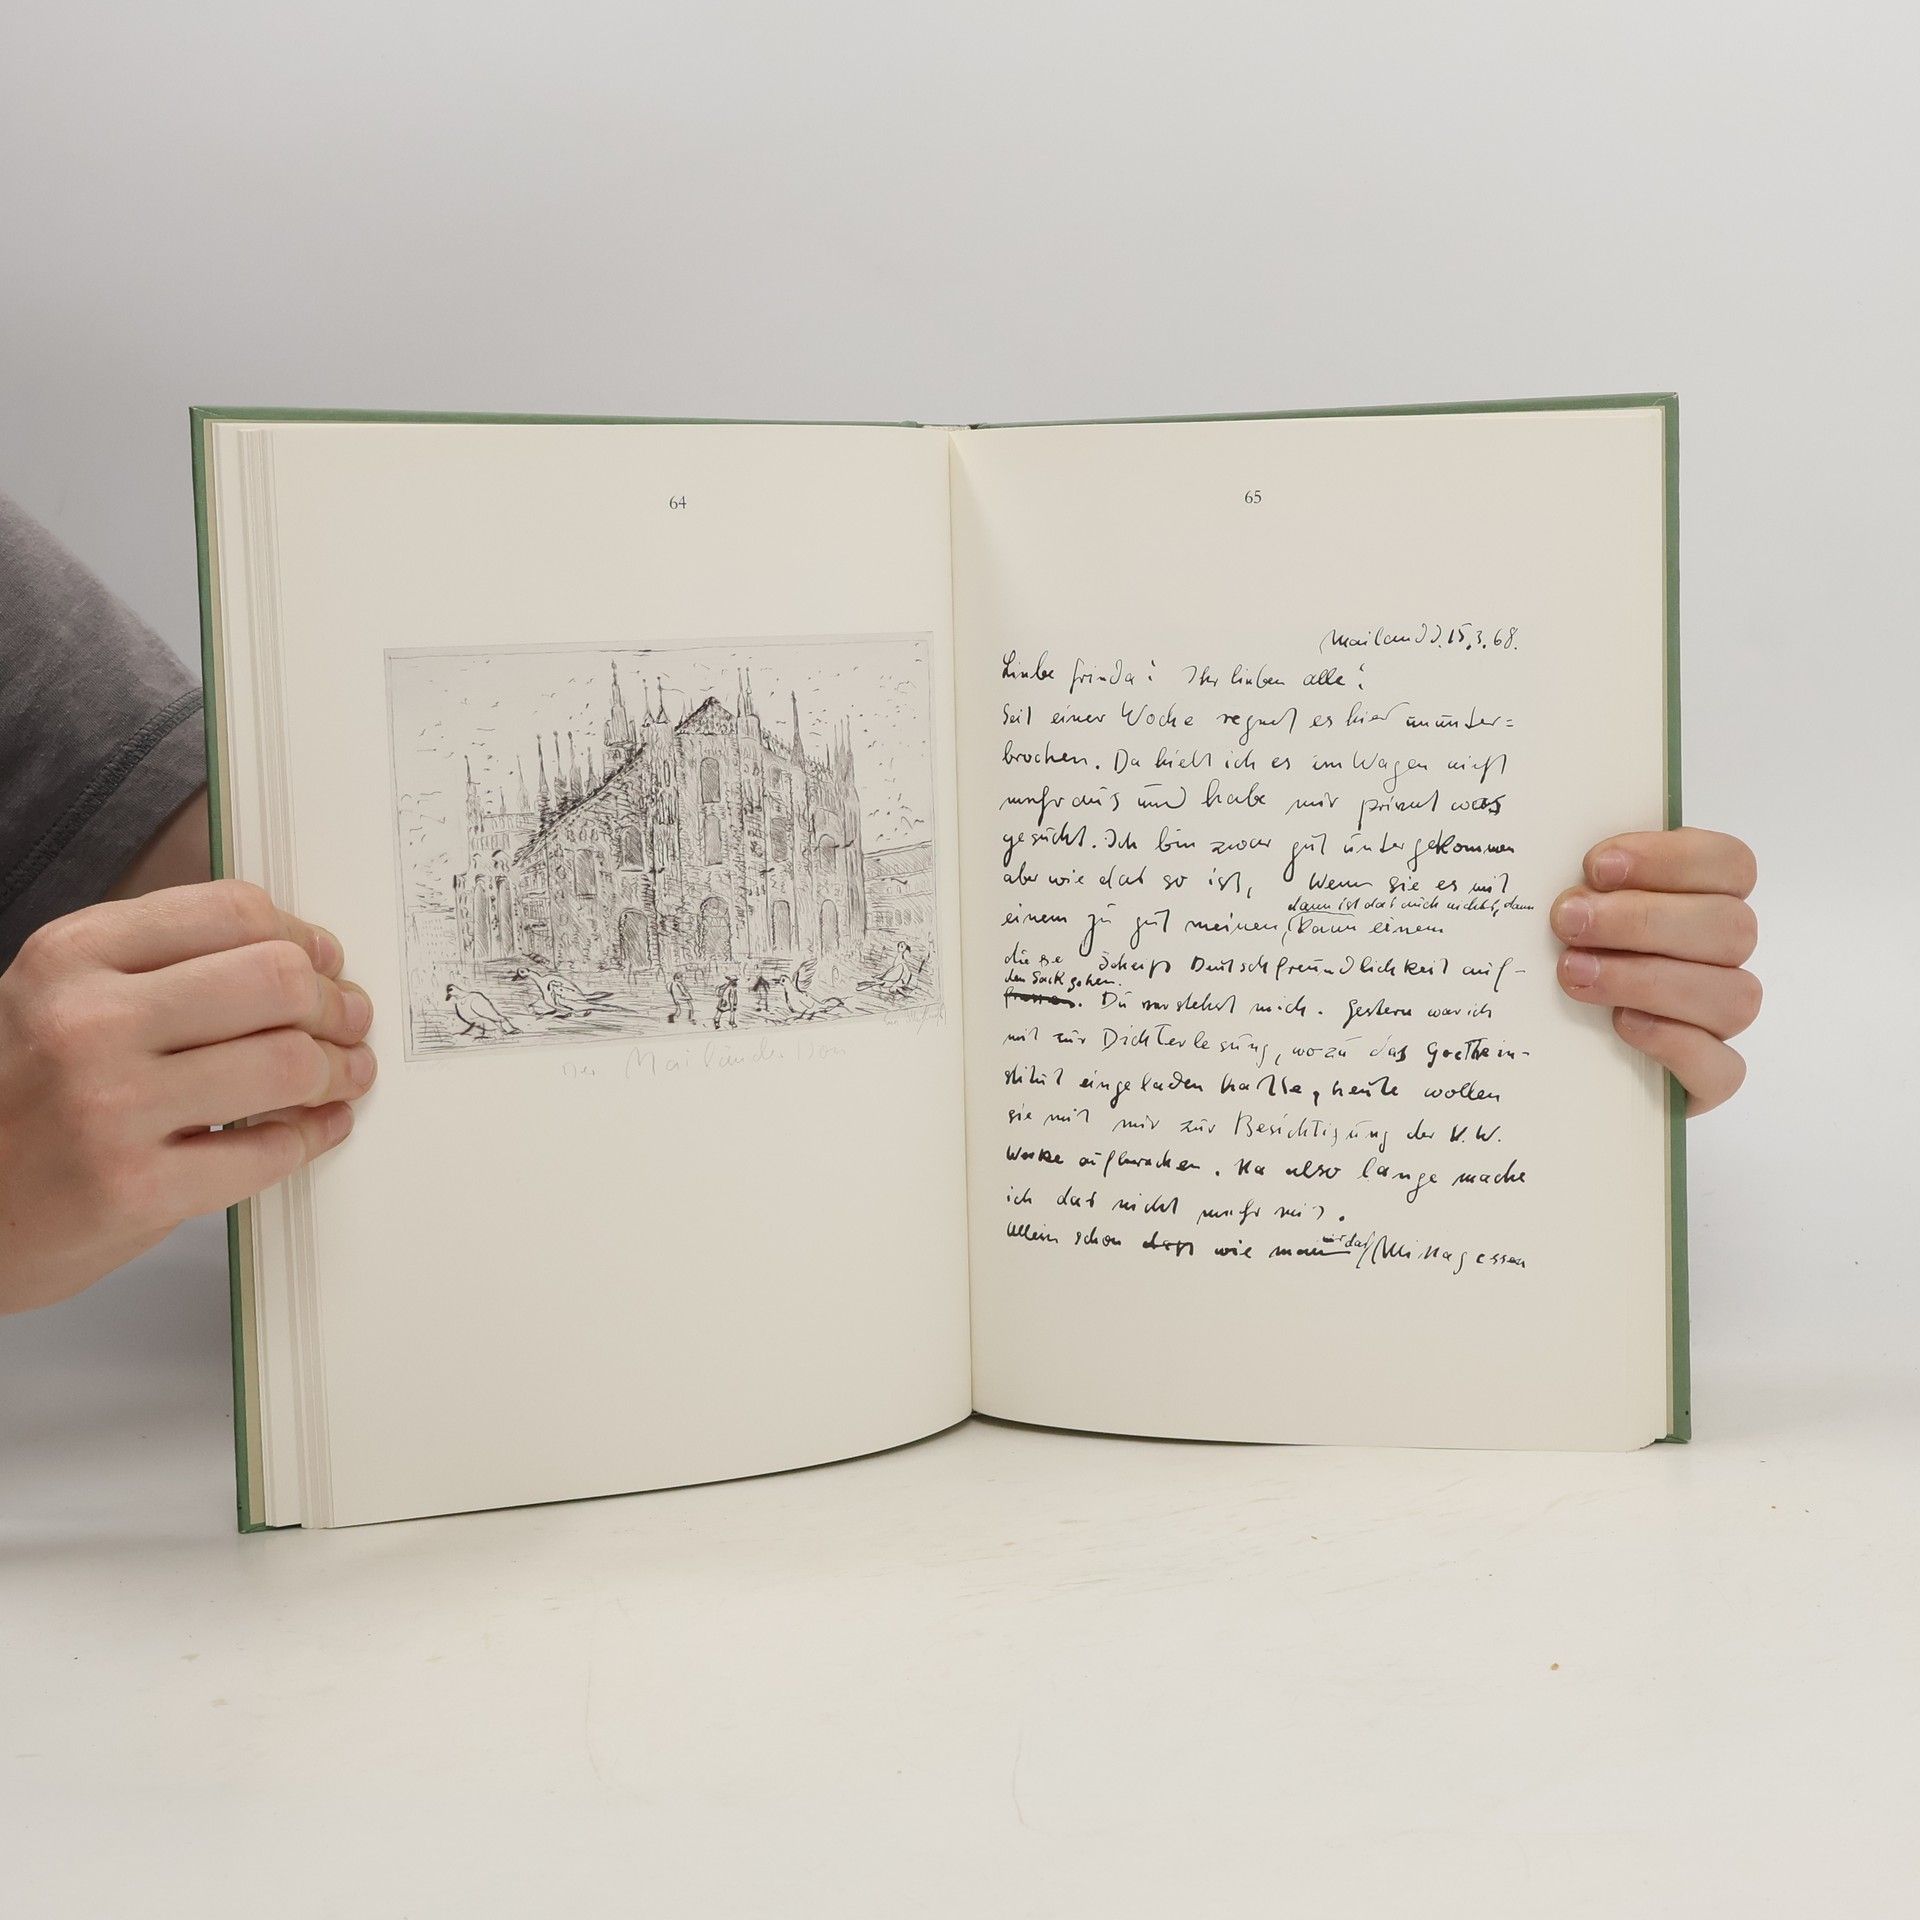 64
Der Mailänder Dom
65
Mailand d. 15.3.68.
Liebe Frieda! Ihr lieben alle!
Seit einer Woche regnet es hier ununter=
brochen. Da hielt ich es im Wagen nicht
mehr aus und habe mir privat was
gesucht. Ich bin zwar gut untergekommen
aber wie das so ist, Wenn sie es mit
dann ist das auch nichts, dann
einem zu gut meinen, kann einem
die ge Deutschfreundlichkeit auf
den Sack gehen.
Du verstehst mich. Gestern war ich
mit zur Dichterlesung, wozu das Goethein-
stitut eingeladen hatte, heute wollen
sie mit mir zur Besichtigung der V.W.
Werke aufbrechen. Na also lange mache
ich das nicht mehr mit.
Allein schon dass wie man das Mittagessen